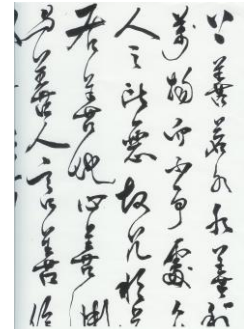 上善若水水善利
萬物而不爭處眾
人之所惡故幾於
居善地心善淵
與善人言善信